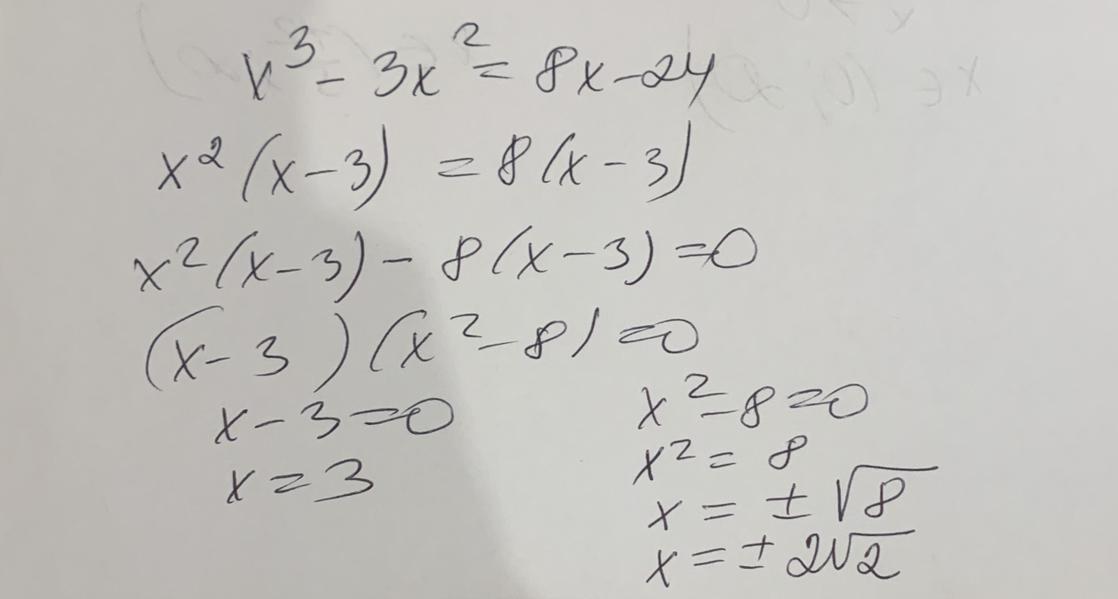 x³ - 3x² = 8x - 24
x² (x - 3) = 8(x - 3)
x² (x - 3) - 8(x - 3) = 0
(x - 3) (x² - 8) = 0
x - 3 = 0
x = 3
x² - 8 = 0
x² = 8
x = ± √8
x = ± 2√2